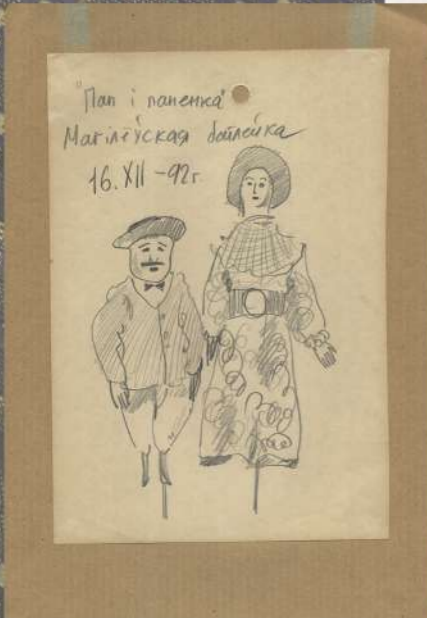 "Пан і паненка"
Магілеўская батлейка
16.XII -92г.